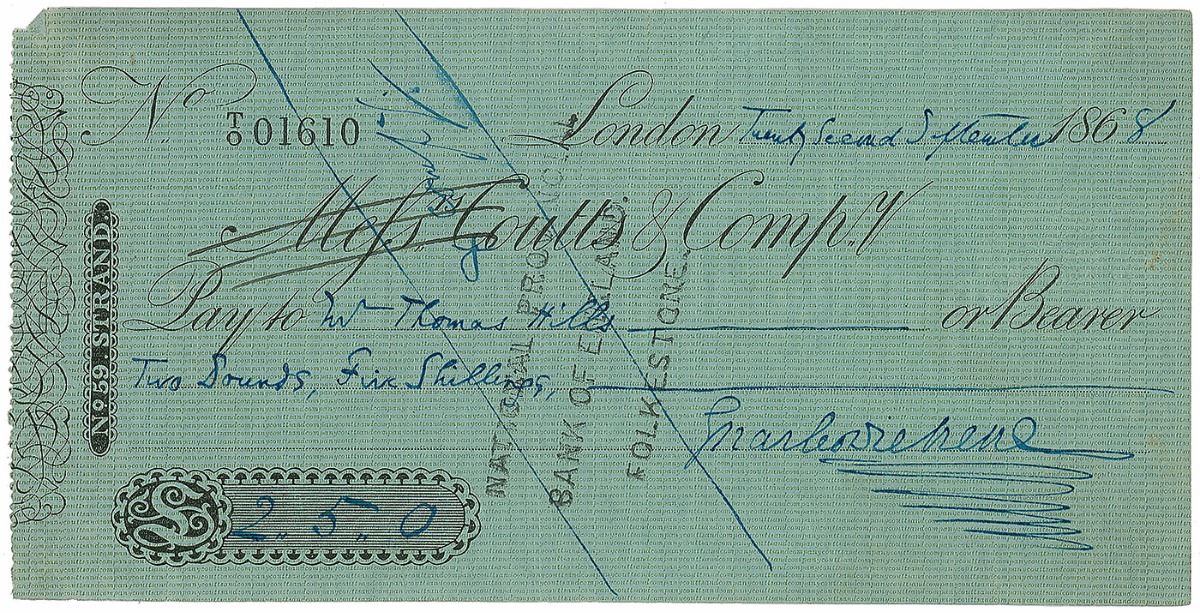 No. T/0 01610
London Twenty Second September 1868
Messrs. Coutts & Compy.
Pay to Mr Thomas Hills or Bearer
Two Pounds, Five Shillings,
Charles Dickens
£ 2. 5. 0
No 59 STRAND
NATIONAL PROVINCIAL
BANK OF ENGLAND.
FOLKESTONE.